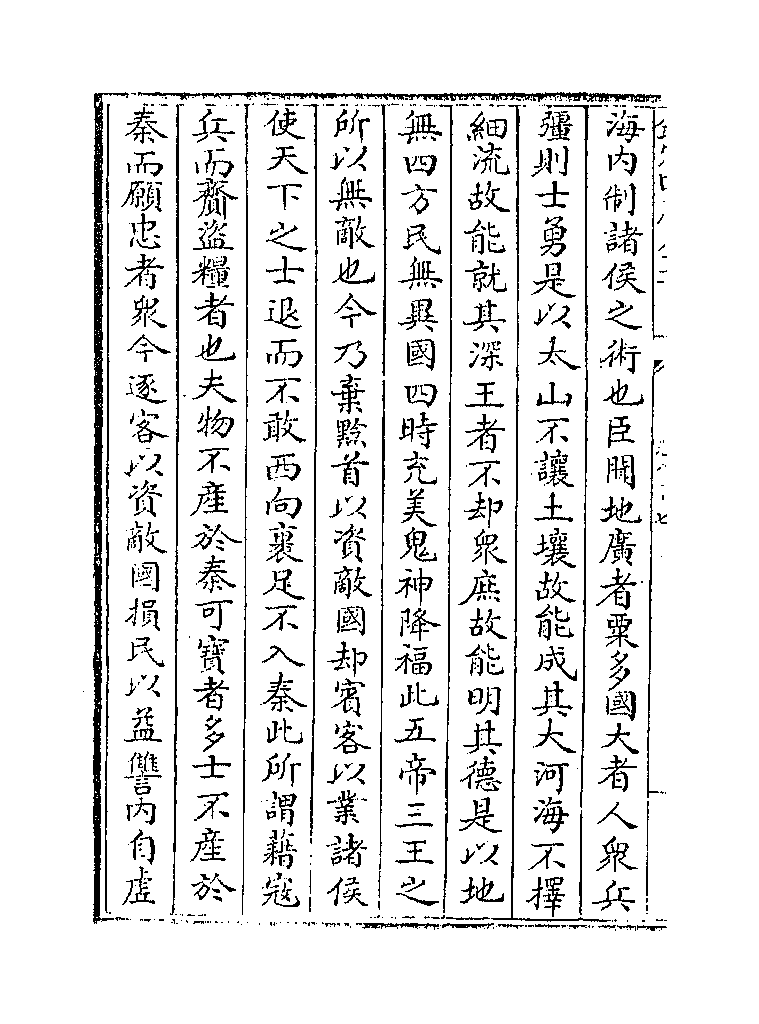 海内制諸侯之術也臣聞地廣者粟多國大者人衆兵
彊則士勇是以太山不讓土壤故能成其大河海不擇
細流故能就其深王者不却衆庶故能明其德是以地
無四方民無異國四時充美鬼神降福此五帝三王之
所以無敵也今乃棄黔首以資敵國却賓客以業諸侯
使天下之士退而不敢西向裹足不入秦此所謂藉寇
兵而齎盜糧者也夫物不產於秦可寳者多士不產於
秦而願忠者衆今逐客以資敵國損民以益讐内自虛